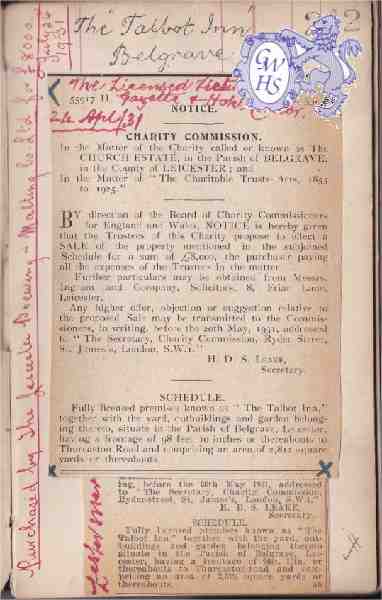 The "Talbot Inn"
Belgrave
242
GWHS
The Licensed Vict
Gazette & Hotel
55917 H
24 April/31
NOTICE.
CHARITY COMMISSION.
In the Matter of the Charity called or known as The
CHURCH ESTATE, in the Parish of BELGRAVE,
in the County of LEICESTER; and
In the Matter of "The Charitable Trusts Acts, 1853
to 1925."
BY direction of the Board of Charity Commissioners
for England and Wales, NOTICE is hereby given
that the Trustees of this Charity propose to effect a
SALE of the property mentioned in the subjoined
Schedule for a sum of £8,000, the purchaser paying
all the expenses of the Trustees in the matter.
Further particulars may be obtained from Messrs.
Ingram and Company, Solicitors, 8, Friar Lane,
Leicester.
Any higher offer, objection or suggestion relative to
the proposed Sale may be transmitted to the Commis-
sioners, in writing, before the 20th May, 1931, addressed
to "The Secretary, Charity Commission, Ryder Street,
St. James's, London, S.W.1."
H. D. S. LEAKE,
Secretary.
SCHEDULE.
Fully licensed premises known as "The Talbot Inn,"
together with the yard, outbuildings and garden belong-
ing thereto, situate in the Parish of Belgrave, Leicester,
having a frontage of 98 feet 10 inches or thereabouts to
Thurcaston Road and comprising an area of 2,812 square
yards or thereabouts.
ing, before the 20th May 1931, addressed
to "The Secretary, Charity Commission,
Ryder-street, St. James's, London, S.W.1."
H. D. S. LEAKE,
Secretary.
SCHEDULE.
Fully licensed premises known as "The
Talbot Inn," together with the yard, out-
buildings and garden belonging thereto
situate in the Parish of Belgrave, Lei-
cester, having a frontage of 98ft. 10in. or
thereabouts to Thurcaston-road and com-
prising an area of 2,812 square yards or
thereabouts.
Purchased by the Leicester Brewing & Malting Co Ltd for £8000.